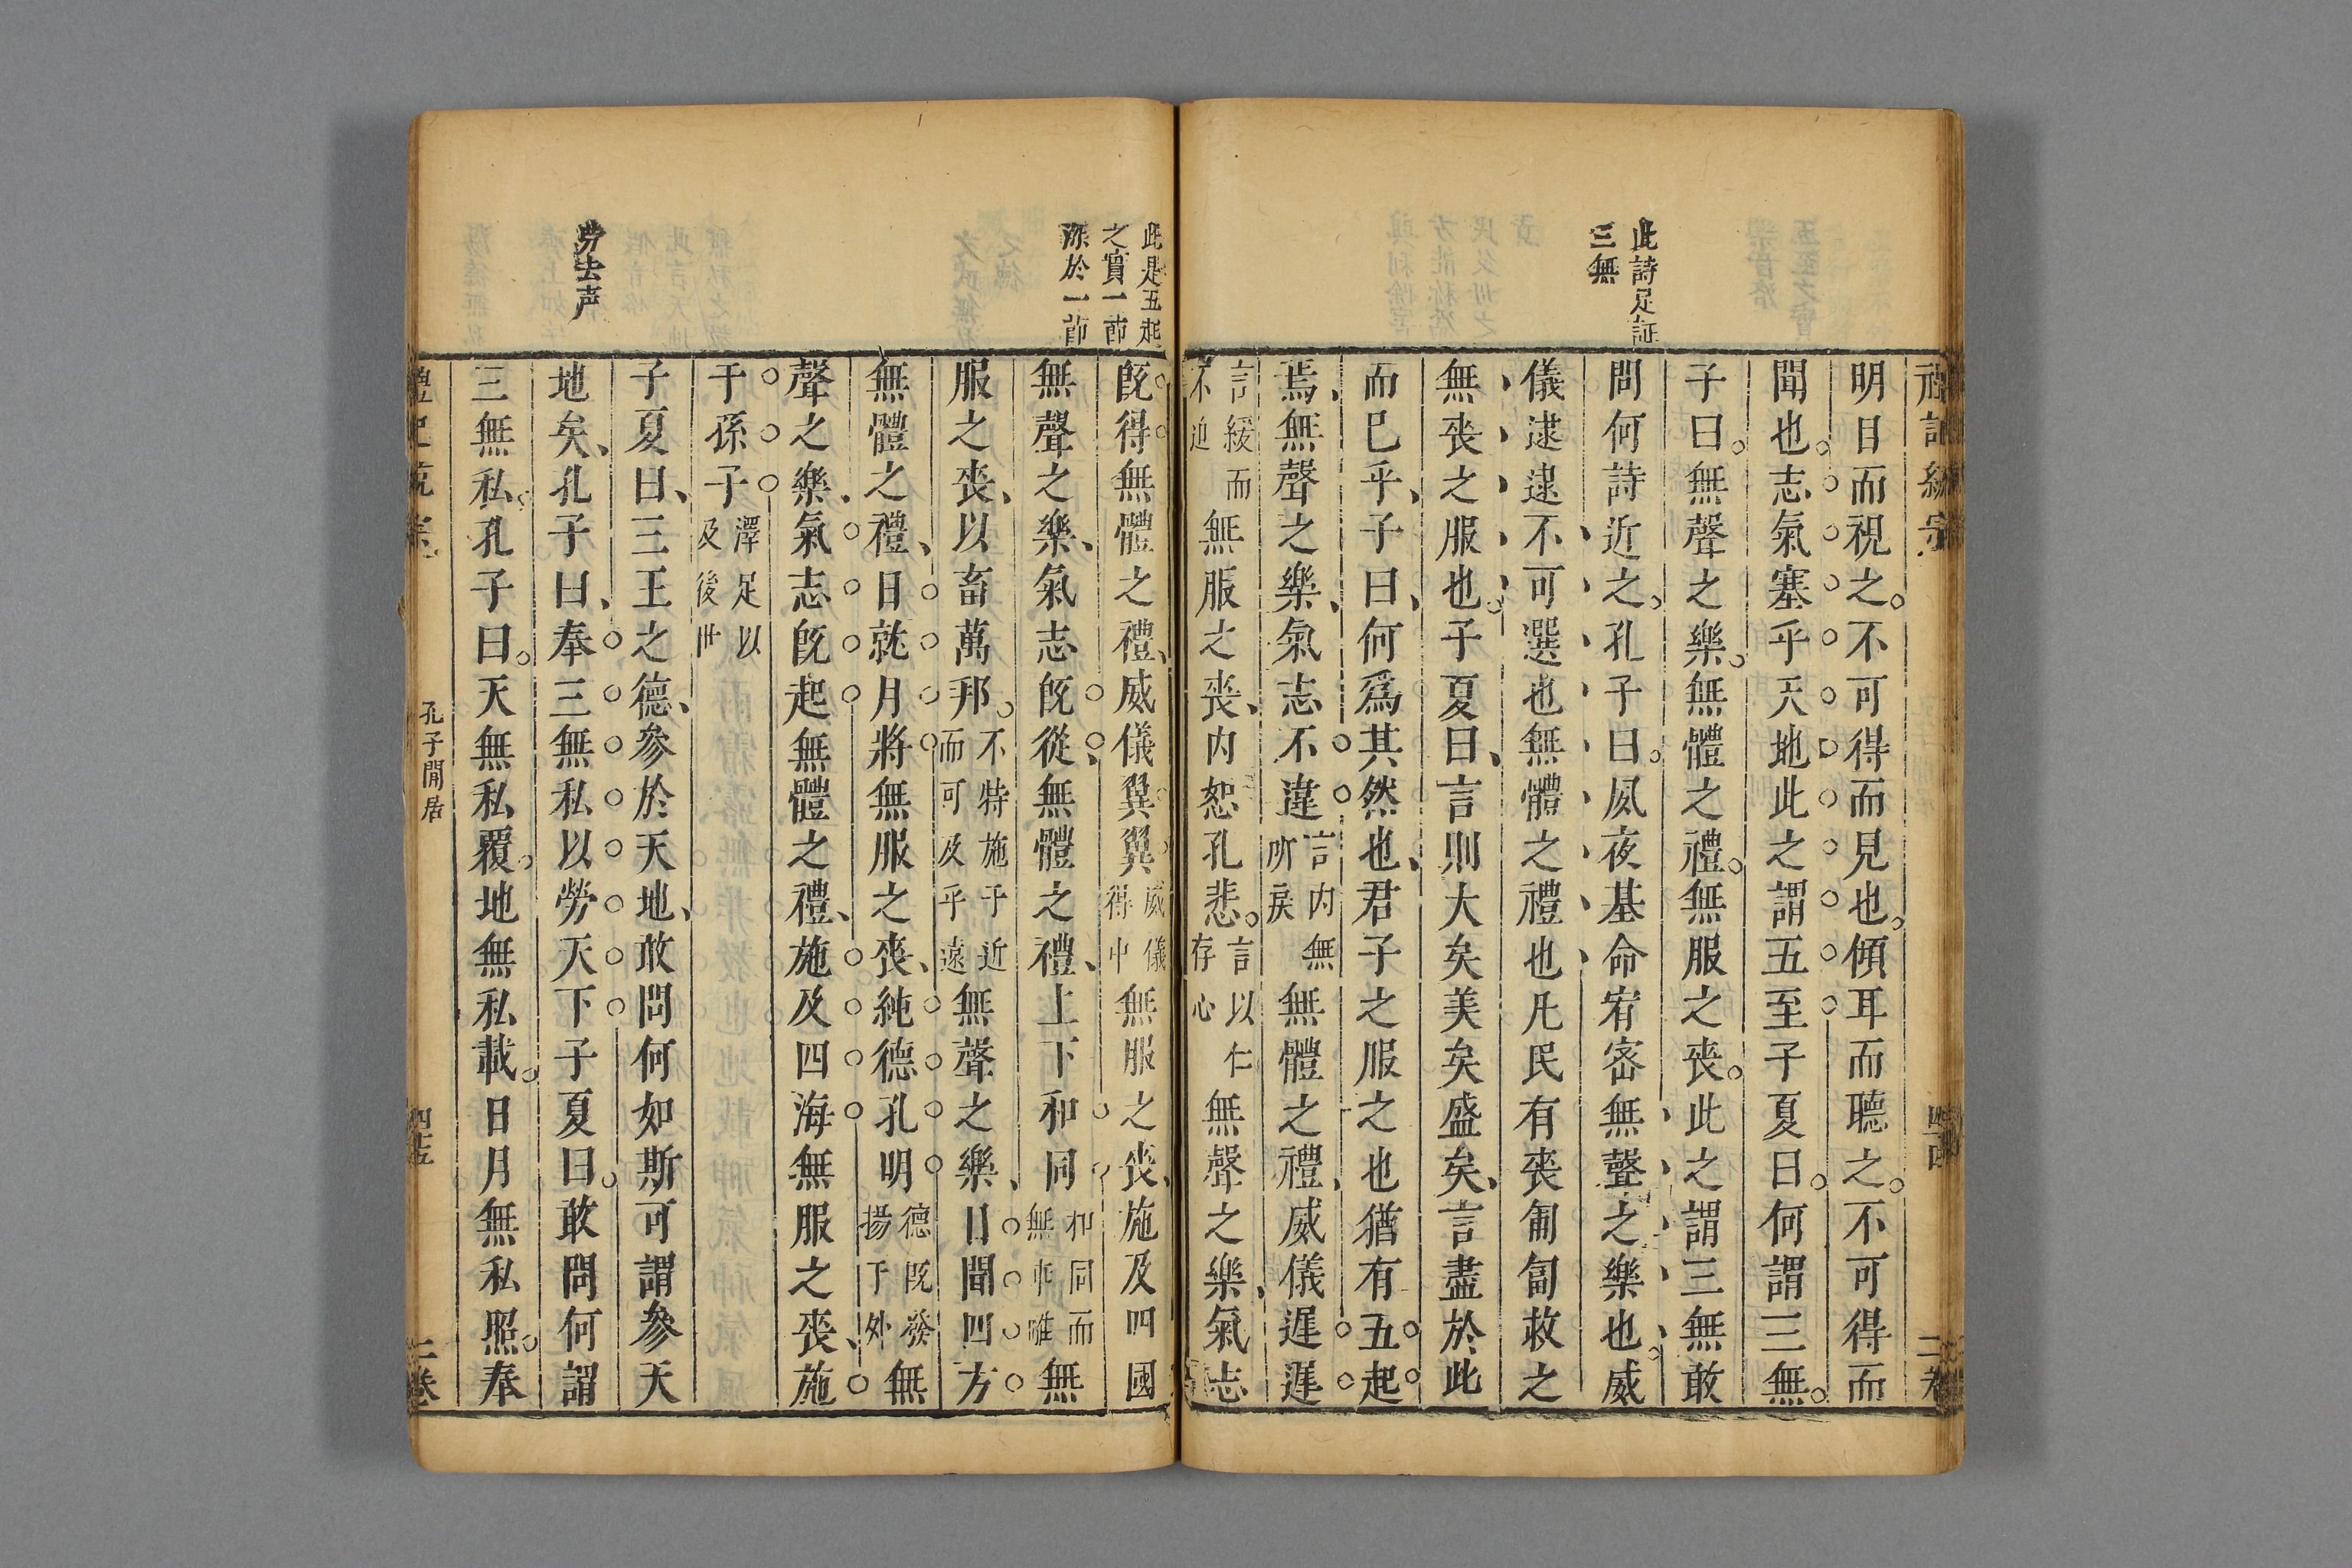 此詩足証
三無
明目而視之。不可得而見也。傾耳而聽之。不可得而
聞也。志氣塞乎天地此之謂五至子夏曰。何謂三無。
子曰。無聲之樂。無體之禮。無服之喪。此之謂三無敢
問何詩近之。孔子曰。夙夜基命宥密無聲之樂也。威
儀逮逮不可選也無體之禮也凡民有喪匍匐救之
無喪之服也。子夏曰、言則大矣美矣盛矣、言盡於此
而已乎、子曰、何爲其然也、君子之服之也猶有五起
焉、無聲之樂、氣志不違言内無所戾無體之禮、威儀遲遲
言緩而不迫無服之喪、内恕孔悲。言以仁存心無聲之樂、氣志
四四
此是五起
之實一節
深於一節
旣得無體之禮、威儀翼翼威儀得中無服之喪、施及四國
無聲之樂、氣志旣從、無體之禮、上下和同和同而無乖離無
服之喪、以畜萬邦。不特施于近而可及乎遠無聲之樂、日聞四方
無體之禮、日就月將無服之喪、純德孔明德旣發揚于外無
聲之樂、氣志旣起無體之禮、施及四海無服之喪、施
于孫子澤足以及後世
子夏曰、三王之德、參於天地、敢問何如斯可謂參天
地矣、孔子曰、奉三無私以勞天下子夏曰。敢問何謂
三無私。孔子曰。天無私覆。地無私載。日月無私照。奉
勞去声
孔子閒居
四五
二卷